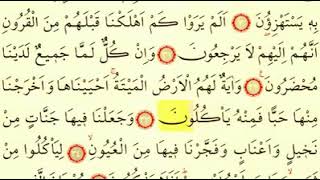 بِهِ يَسْتَهْزِؤُنَ اَلَمْ يَرَوْا كَمْ اَهْلَكْنَا قَبْلَهُمْ مِنَ الْقُرُونِ
اَنَّهُمْ اِلَيْهِمْ لَا يَرْجِعُونَ وَاِنْ كُلٌّ لَمَّا جَمِيعٌ لَدَيْنَا
مُحْضَرُونَ وَاٰيَةٌ لَهُمُ الْاَرْضُ الْمَيْتَةُ اَحْيَيْنَاهَا وَاَخْرَجْنَا
مِنْهَا حَبًّا فَمِنْهُ يَأْكُلُونَ وَجَعَلْنَا فِيهَا جَنَّاتٍ مِنْ
نَخِيلٍ وَاَعْنَابٍ وَفَجَّرْنَا فِيهَا مِنَ الْعُيُونِ لِيَأْكُلُوا مِنْ